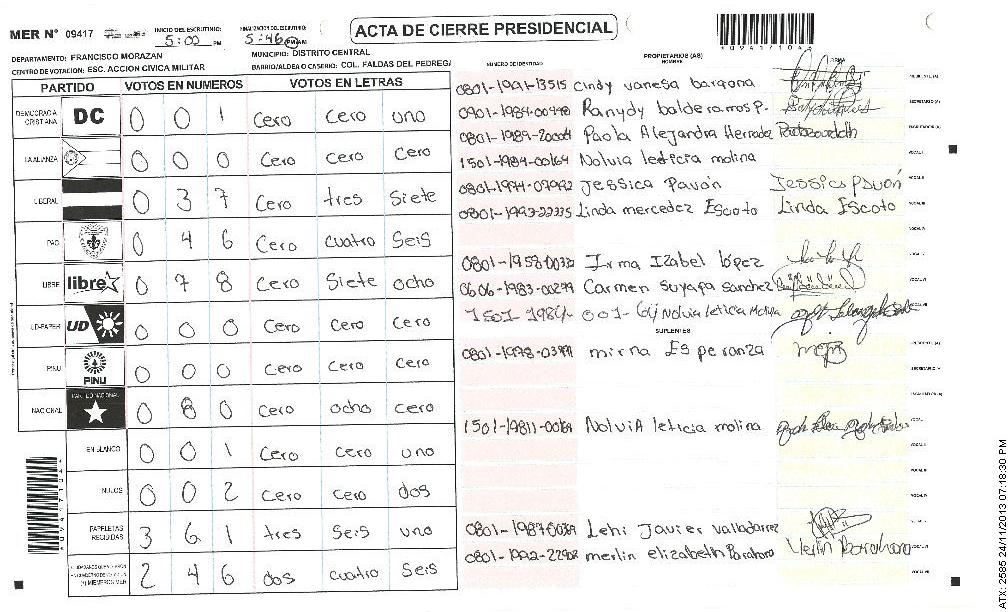 ACTA DE CIERRE PRESIDENCIAL
MER N° 09417
INICIO DEL ESCRUTINIO: 5:00 PM
FINALIZACION DEL ESCRUTINIO: 5:46 PM AM
DEPARTAMENTO: FRANCISCO MORAZAN
MUNICIPIO: DISTRITO CENTRAL
CENTRO DE VOTACION: ESC. ACCION CIVICA MILITAR
BARRIO/ALDEA O CASERIO: COL. FALDAS DEL PEDREG/
PARTIDO VOTOS EN NUMEROS VOTOS EN LETRAS
DEMOCRACIA CRISTIANA DC 0 0 1 Cero Cero uno
LA ALIANZA 0 0 0 Cero Cero Cero
LIBERAL 0 3 7 Cero tres Siete
PAC 0 4 6 Cero cuatro Seis
LIBRE libre 0 7 8 Cero Siete ocho
UD-FAPER UD 0 0 0 Cero Cero Cero
PINU PINU 0 0 0 Cero Cero Cero
NACIONAL PARTIDO NACIONAL 0 8 0 Cero ocho Cero
EN BLANCO 0 0 1 Cero Cero uno
NULOS 0 0 2 Cero Cero dos
PAPELETAS RECIBIDAS 3 6 1 tres Seis uno
2 4 6 dos cuatro Seis
NUMERO DE IDENTIDAD PROPIETARIOS (AS) NOMBRE FIRMA
0801-1991-13515 Cindy vanesa baraona
0901-1984-00448 Ranydy balderamos P.
0801-1989-20004 Paola Alejandra Herrada
1501-1984-00164 Nolvia leticia molina
0801-1994-07992 Jessica Pavón Jessica Pavón
0801-1993-22335 Linda mercedez Escoto Linda Escoto
0801-1958-0033 Irma Izabel López
0606-1983-00299 Carmen Suyapa Sanchez
1501-1984-001-64 Nolvia leticia Molina
SUPLENTES
0801-1978-0399 mirna Esperanza
1501-19811-00164 NolviA leticia molina
0801-1987-0039 Lehi Javier valladarez
0801-1992-22908 merlin elizabeth Barahona
*09417104*
ATX: 2585 24/11/2013 07:18:30 PM